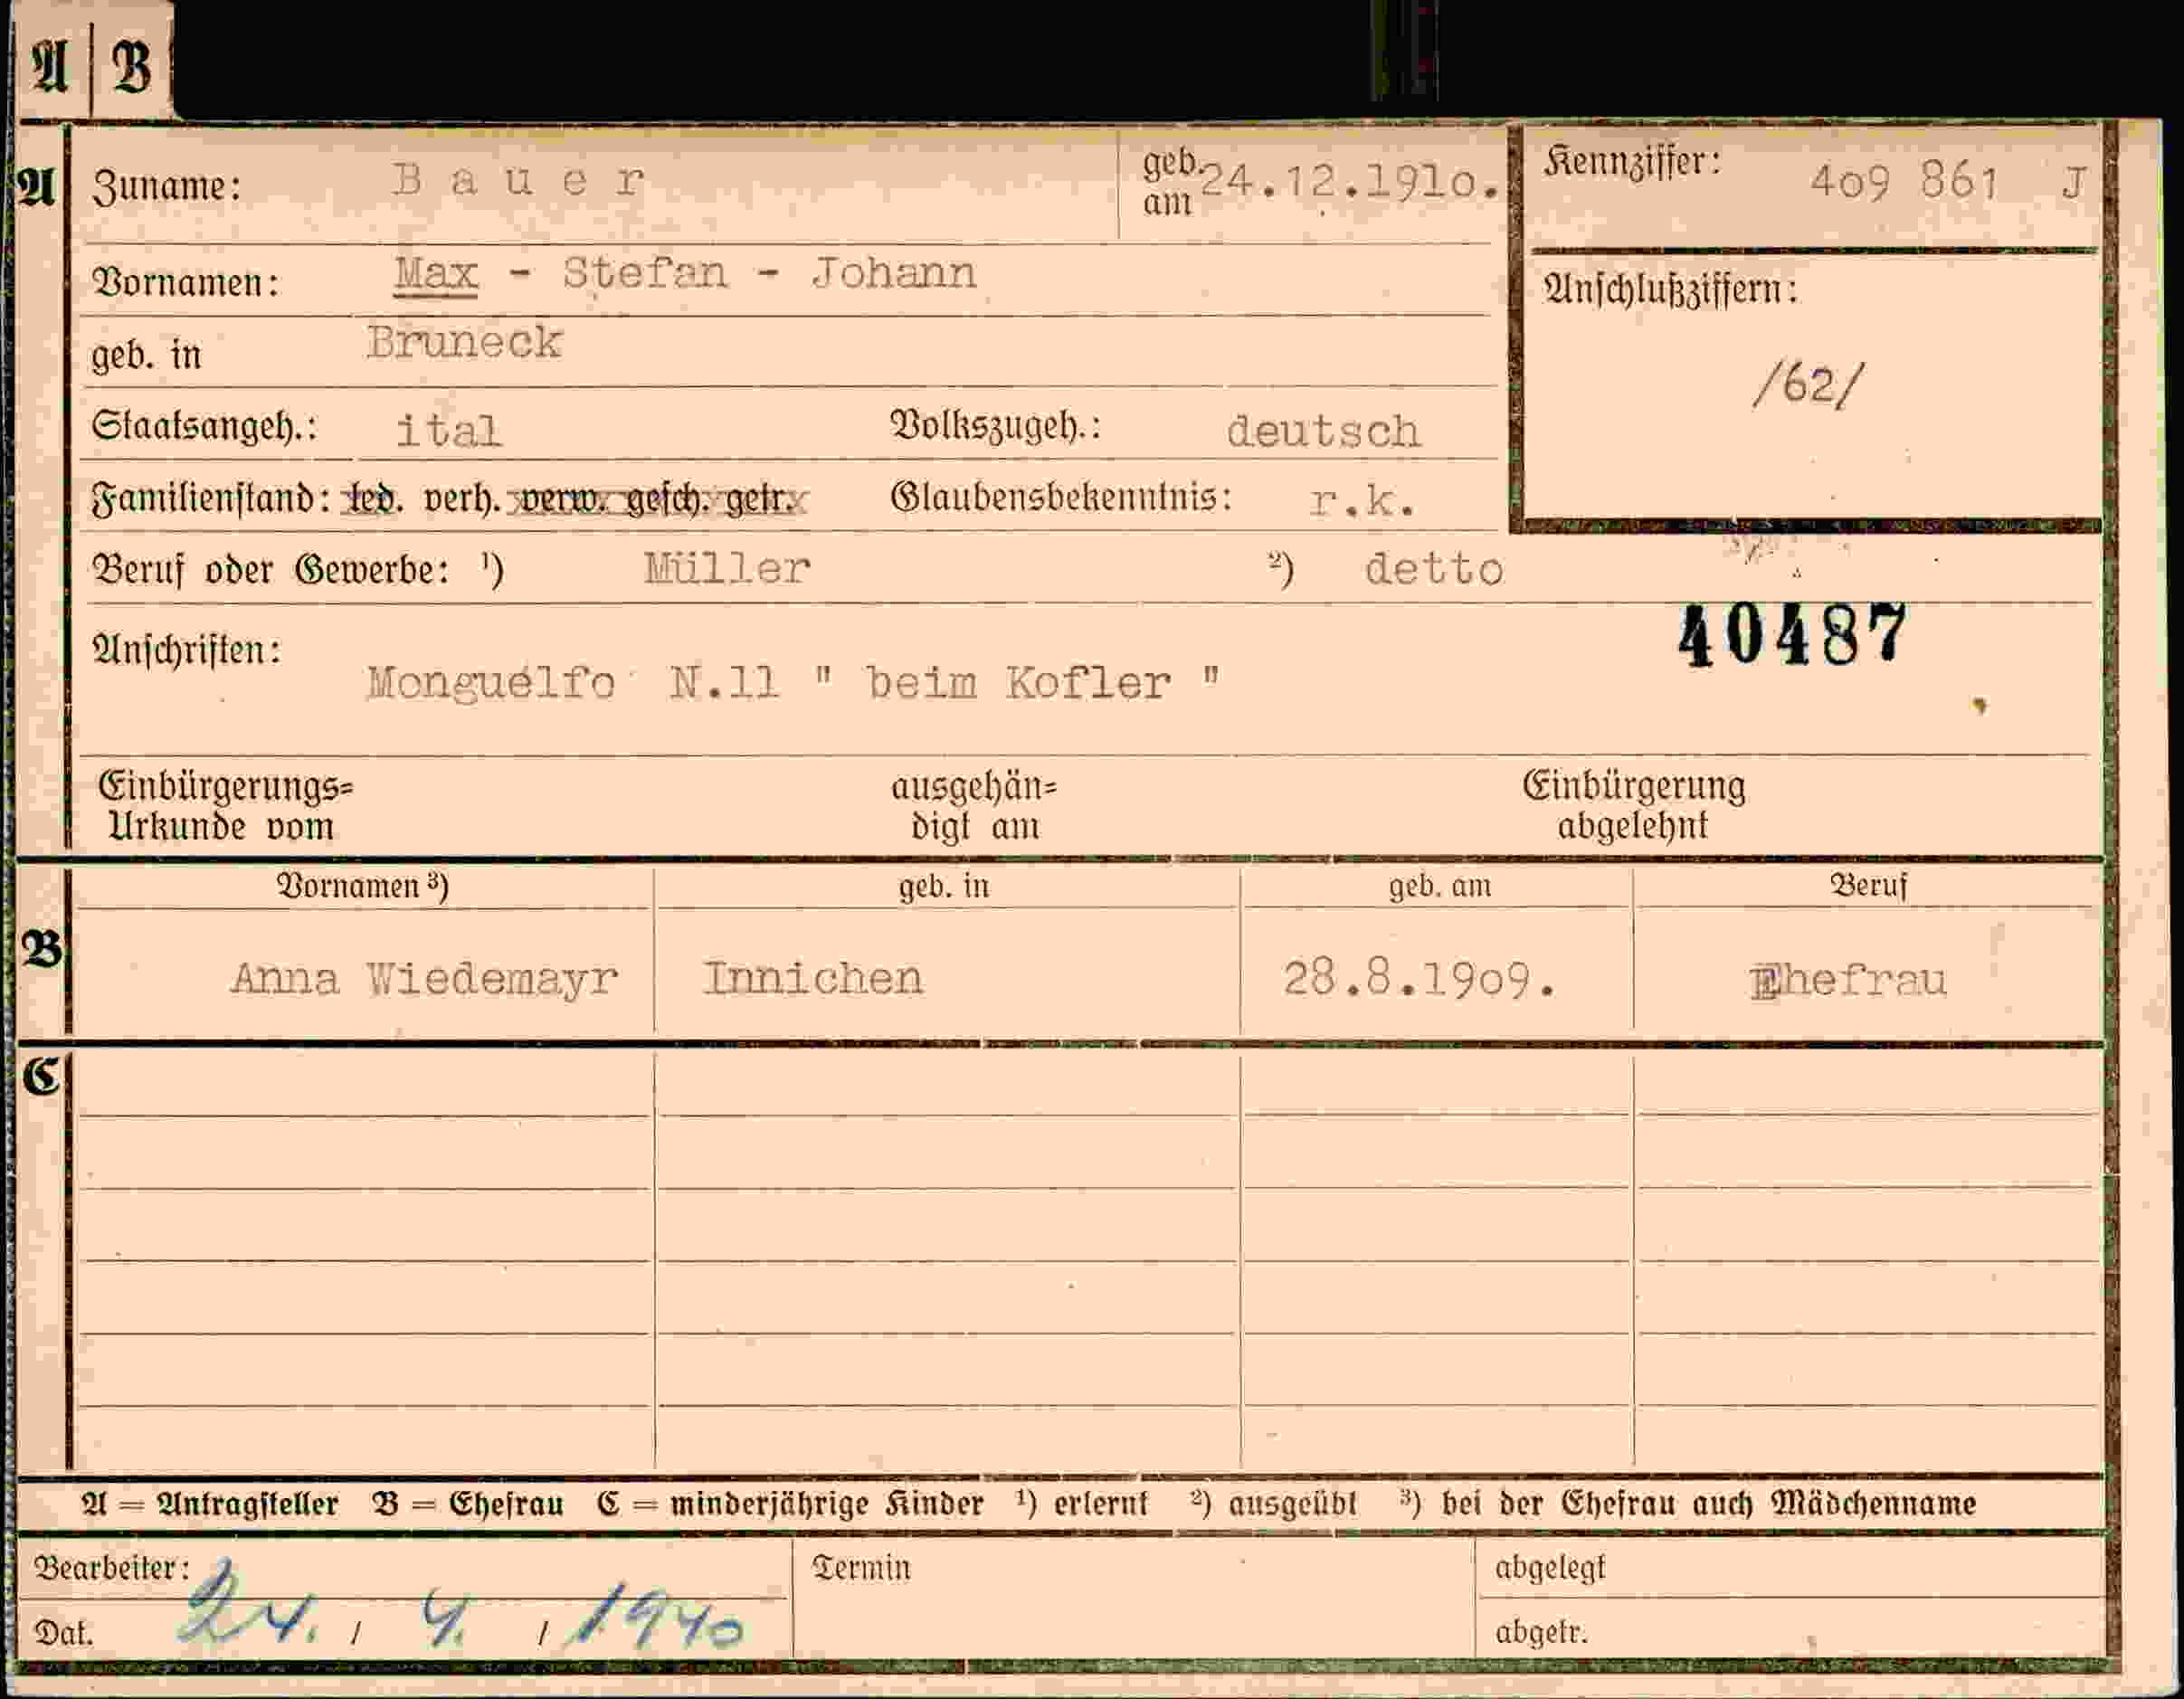 A B
A Zuname: Bauer geb. am 24.12.1910. Kennziffer: 409 861 J
Vornamen: Max - Stefan - Johann
Anschlußziffern:
geb. in Bruneck
/62/
Staatsangeh.: ital Volkszugeh.: deutsch
Familienstand: led. verh. verw. gesch. getr. Glaubensbekenntnis: r.k.
Beruf oder Gewerbe: ¹) Müller ²) detto
40487
Anschriften:
Monguelfo N.11 " beim Kofler "
Einbürgerungs= ausgehän= Einbürgerung
Urkunde vom digt am abgelehnt
Vornamen ³) geb. in geb. am Beruf
B Anna Wiedemayr Innichen 28.8.1909. Ehefrau
C
A = Antragsteller B = Ehefrau C = minderjährige Kinder ¹) erlernt ²) ausgeübt ³) bei der Ehefrau auch Mädchenname
Bearbeiter: Termin abgelegt
Dat. 24. / 4. / 1940 abgetr.